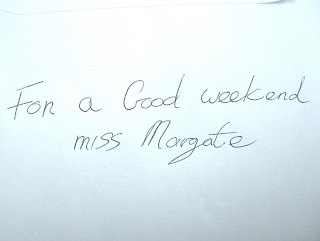 For a Good weekend
miss Margate